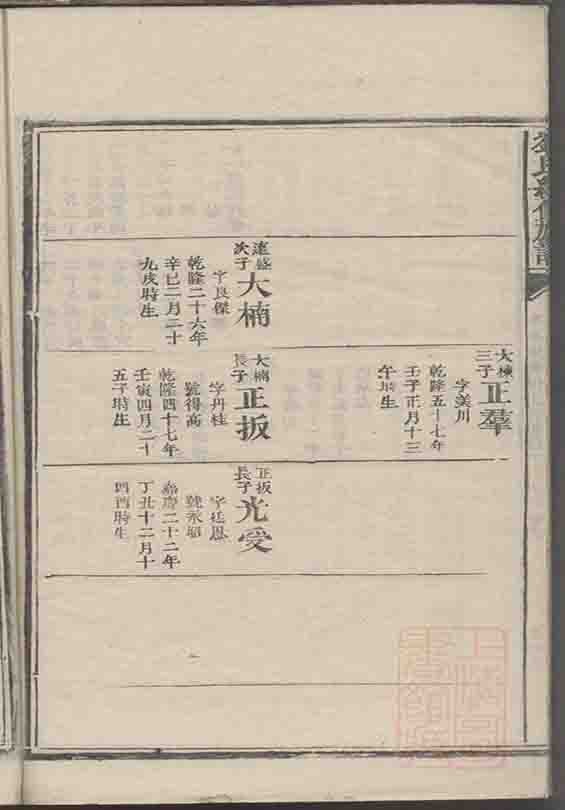 大棟
三子
正羣
字美川
乾隆五十七年
壬子正月十三
午時生
遠盛
次子
大楠
字良傑
乾隆二十六年
辛巳二月二十
九戌時生
大楠
長子
正扳
字丹桂
號得高
乾隆四十七年
壬寅四月二十
五子時生
正扳
長子
光受
字廷恩
號永昭
嘉慶二十二年
丁丑十二月十
四酉時生